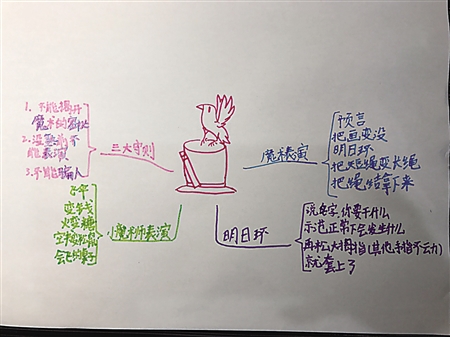 1、不能揭开
魔术的
2、没熟前不
能表演
3、不能骗人
三大守则
魔术表演
预言
把画变没
明日环
把短绳变长绳
把绳结拿下来
变钱
火变糖
空手变
会飞的桌子
小魔术师表演
明日环
说名字,你要干什么
示范正常下会发生什么
再松大拇指(其他手指不动)
就套上了